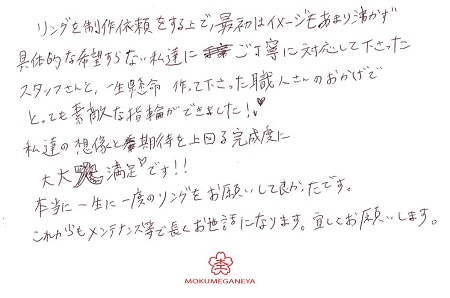 リングを制作依頼をする上で、最初はイメージもあまり沸かず
具体的な希望すらない私達に ご丁寧に対応して下さった
スタッフさんと、一生懸命 作って下さった職人さんのおかげで
とっても素敵な指輪ができました!♥
私達の想像と期待を上回る完成度に
大大 満足♡です!!
本当に一生に一度のリングをお願いして良かったです。
これからもメンテナンス等で長くお世話になります。宜しくお願いします。
MOKUMEGANEYA